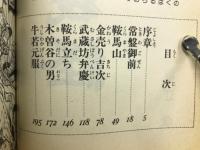 目次
序章 5
常盤御前 18
鞍馬山 49
金売り吉次 78
武蔵坊弁慶 118
鞍馬立ち 146
木曽谷の男 172
牛若元服 195